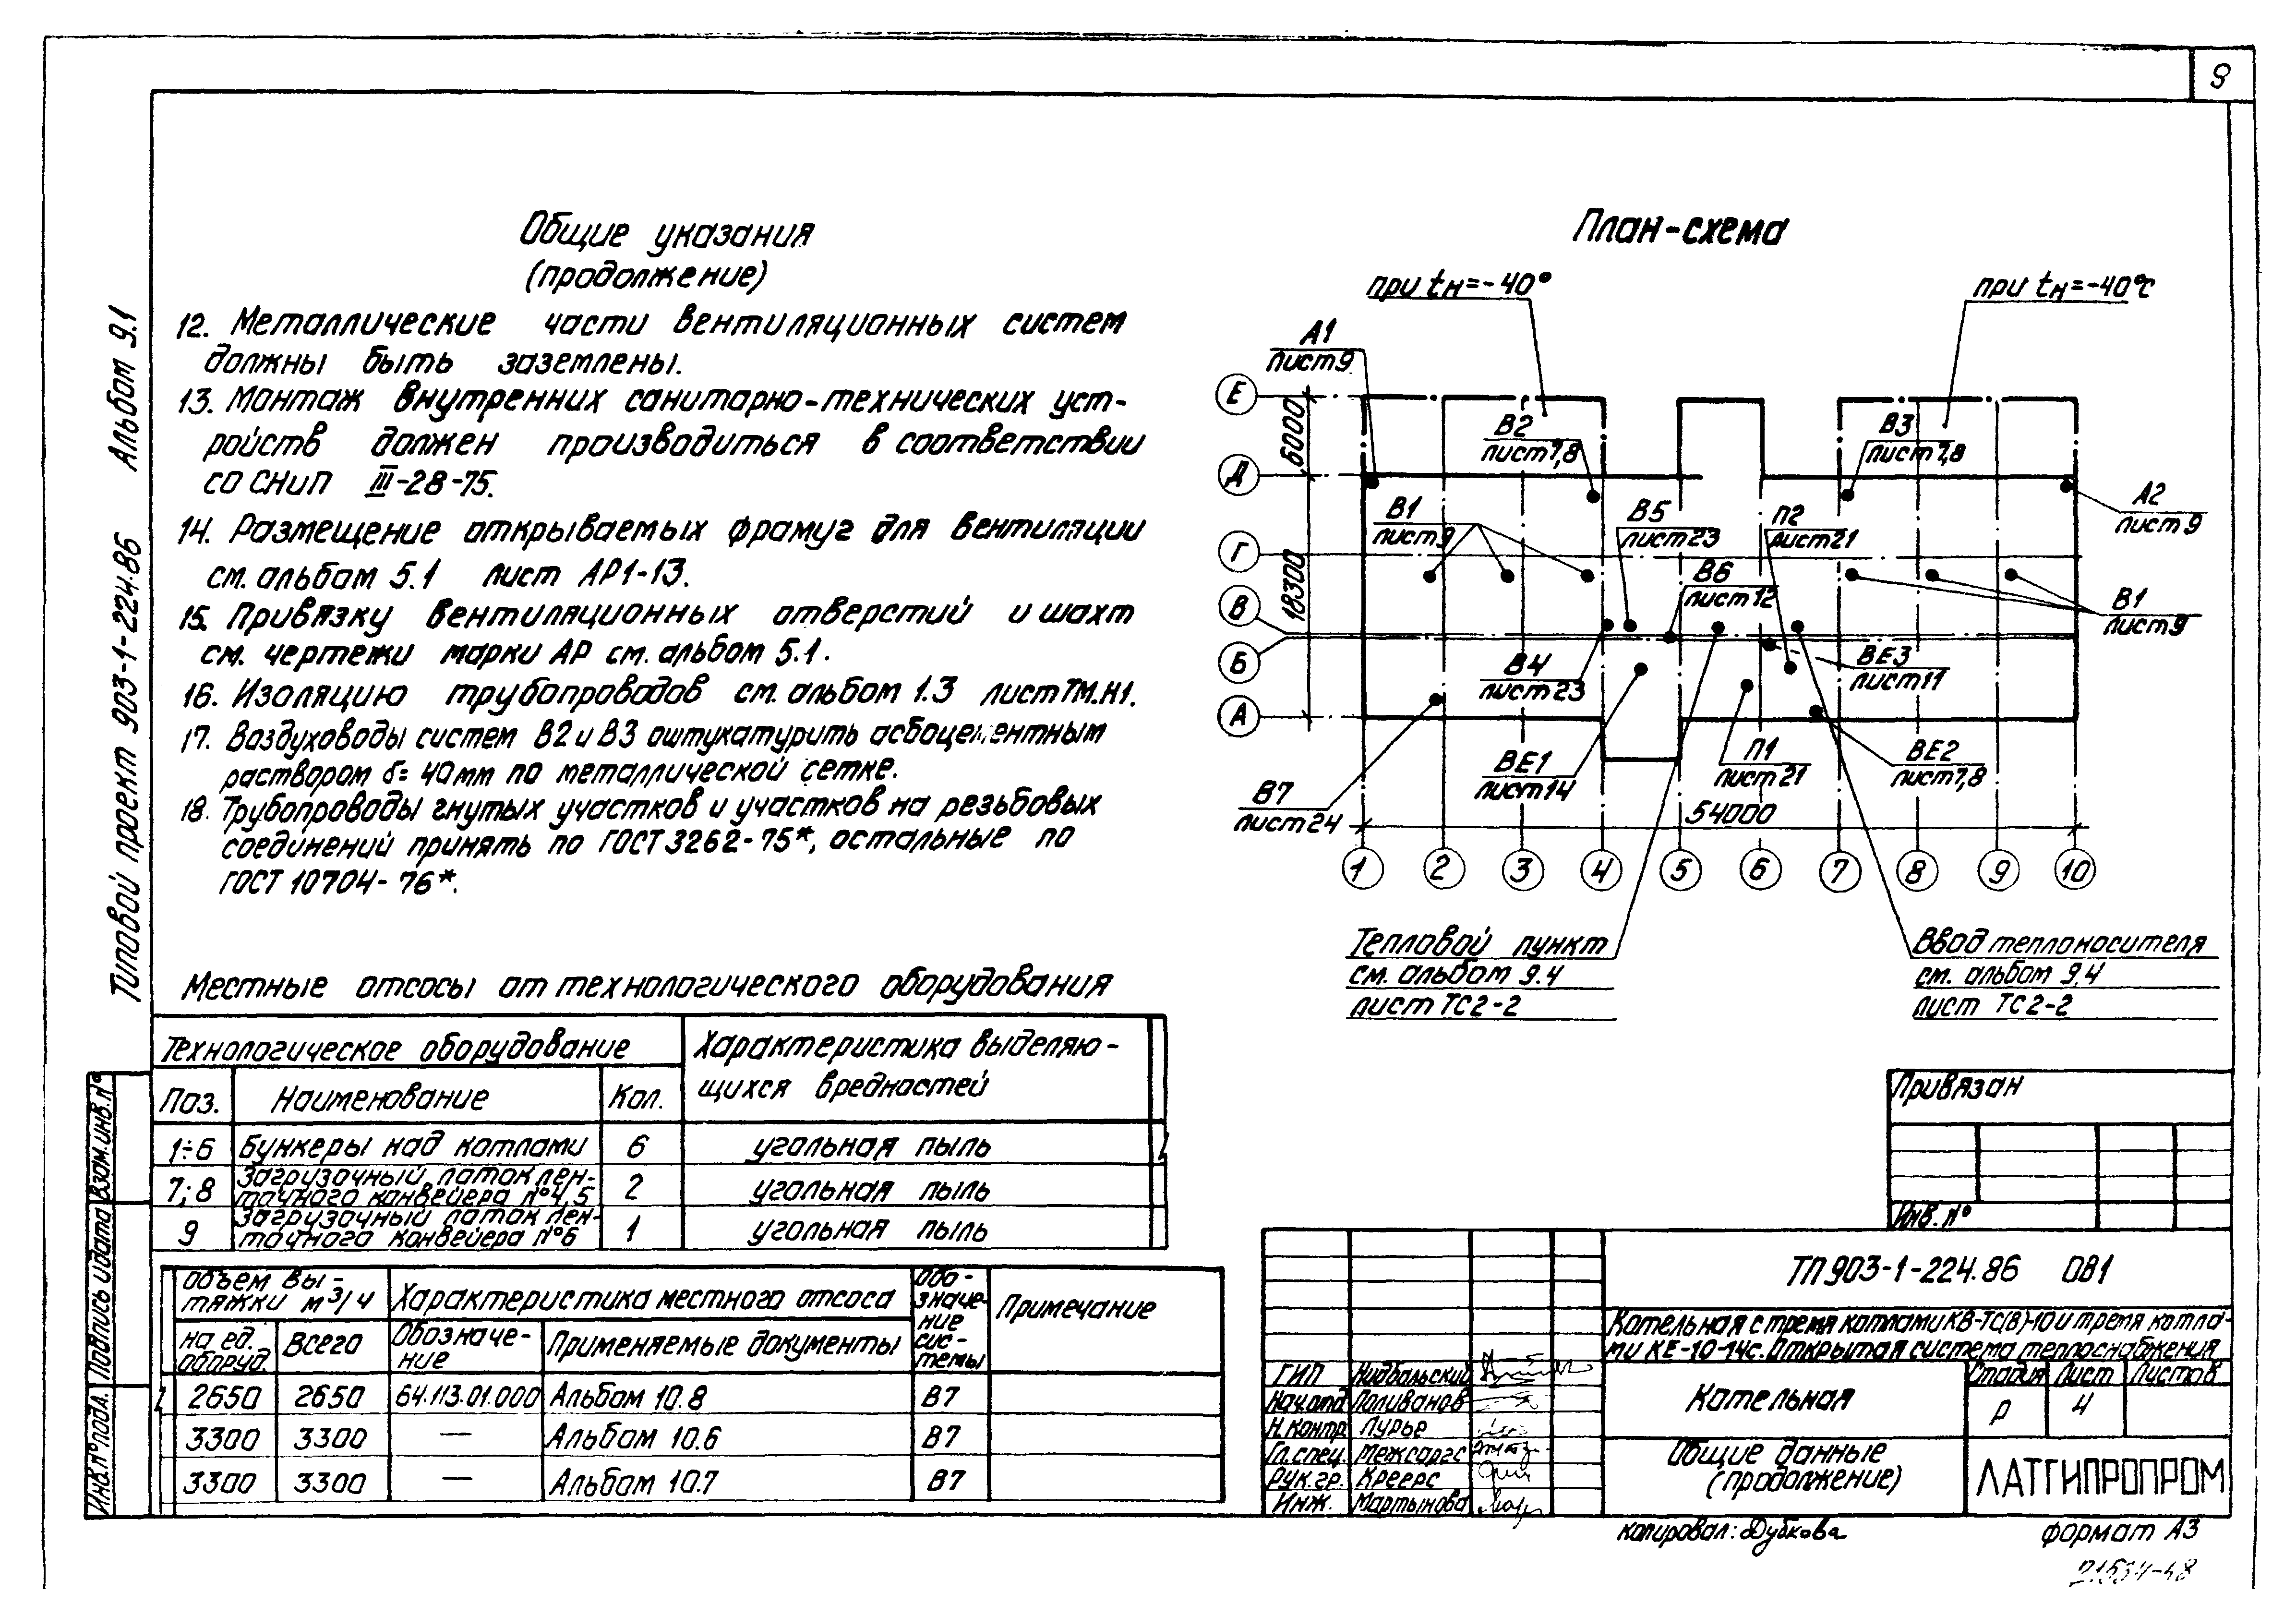 9
Типовой проект 903-1-224.86 Альбом 9.1
Общие указания
(продолжение)
12. Металлические части вентиляционных систем
должны быть заземлены.
13. Монтаж внутренних санитарно-технических уст-
ройств должен производиться в соответствии
со СНиП III-28-75.
14. Размещение открываемых фрамуг для вентиляции
см. альбом 5.1 лист АР1-13.
15. Привязку вентиляционных отверстий и шахт
см. чертежи марки АР см. альбом 5.1.
16. Изоляцию трубопроводов см. альбом 1.3 лист ТМ.Н1.
17. Воздуховоды систем В2 и В3 оштукатурить асбоцементным
раствором δ= 40мм по металлической сетке.
18. Трубопроводы гнутых участков и участков на резьбовых
соединений принять по ГОСТ 3262-75*, остальные по
ГОСТ 10704-76*.
План-схема
при tн=-40°
при tн=-40°С
А1
лист 9
Е
Д
Г
В
Б
А
6000
18300
В2
лист 7,8
В3
лист 7,8
А2
лист 9
В1
лист 9
В5
лист 23
П2
лист 21
В6
лист 12
В1
лист 9
В4
лист 23
ВЕ3
лист 11
ВЕ1
лист 14
П1
лист 21
ВЕ2
лист 7,8
В7
лист 24
54000
1 2 3 4 5 6 7 8 9 10
Тепловой пункт
см. альбом 9.4
лист ТС2-2
Ввод теплоносителя
см. альбом 9.4
лист ТС2-2
Местные отсосы от технологического оборудования
Технологическое оборудование
Характеристика выделяю-
щихся вредностей
Поз. Наименование Кол.
1÷6 Бункеры над котлами 6 угольная пыль
7;8 Загрузочный лоток лен-
точного конвейера №4,5 2 угольная пыль
9 Загрузочный лоток лен-
точного конвейера №6 1 угольная пыль
Объем вы-
тяжки м³/ч
Характеристика местного отсоса
Обо-
значе-
ние
сис-
темы
Примечание
на ед.
оборуд.
Всего
Обозначе-
ние
Применяемые документы
2650 2650 64.113.01.000 Альбом 10.8 В7
3300 3300 — Альбом 10.6 В7
3300 3300 — Альбом 10.7 В7
Взам.инв.№
Подпись и дата
Инв.№ подл.
Привязан
Инв.№
ТП 903-1-224.86 ОВ1
Котельная с тремя котлами КВ-ТС(В)-10 и тремя котла-
ми КЕ-10-14с. Открытая система теплоснабжения
ГИП Нидбальский
Нач.отд Поливанов
Н.контр Лурье
Гл.спец. Межсаргс
Рук.гр. Креерс
Инж. Мартынова
Котельная
Стадия Лист Листов
Р 4
Общие данные
(продолжение)
ЛАТГИПРОПРОМ
копировал: Дубкова
формат А3